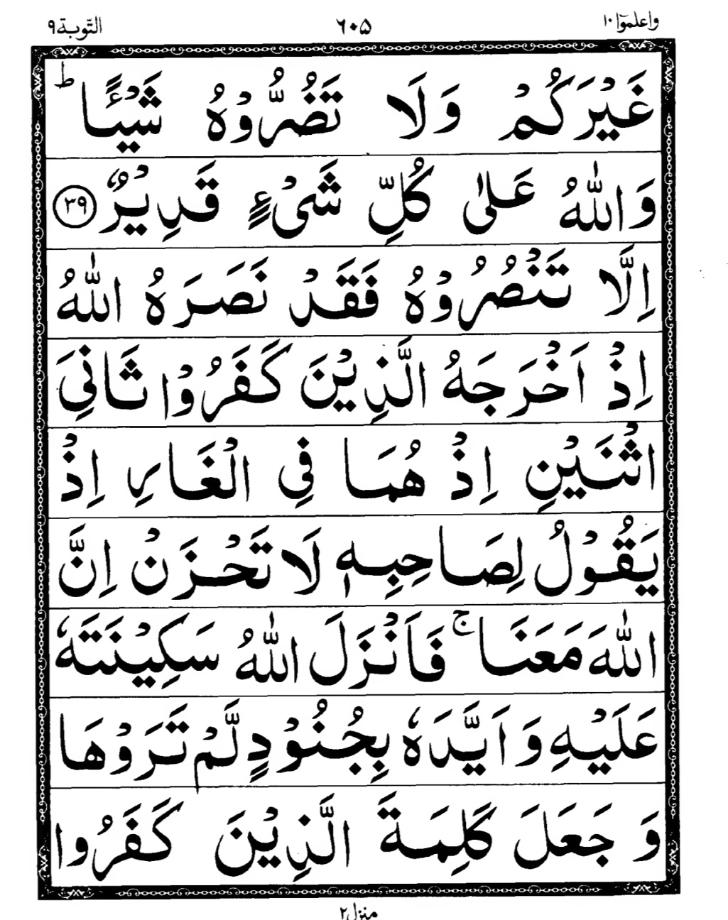 واعلموٓا ١٠ ٦٠۵ التّوبة ٩
غَيْرَكُمْ وَلَا تَضُرُّوْهُ شَيْـًٔا ؕ
وَاللّٰهُ عَلٰى كُلِّ شَىْءٍ قَدِيْرٌ ﴿٣٩﴾
اِلَّا تَنْصُرُوْهُ فَقَدْ نَصَرَهُ اللّٰهُ
اِذْ اَخْرَجَهُ الَّذِيْنَ كَفَرُوْا ثَانِىَ
اثْنَيْنِ اِذْ هُمَا فِى الْغَارِ اِذْ
يَقُوْلُ لِصَاحِبِهٖ لَا تَحْزَنْ اِنَّ
اللّٰهَ مَعَنَا ۚ فَاَنْزَلَ اللّٰهُ سَكِيْنَتَهٗ
عَلَيْهِ وَاَيَّدَهٗ بِجُنُوْدٍ لَّمْ تَرَوْهَا
وَجَعَلَ كَلِمَةَ الَّذِيْنَ كَفَرُوا
منزل ٢